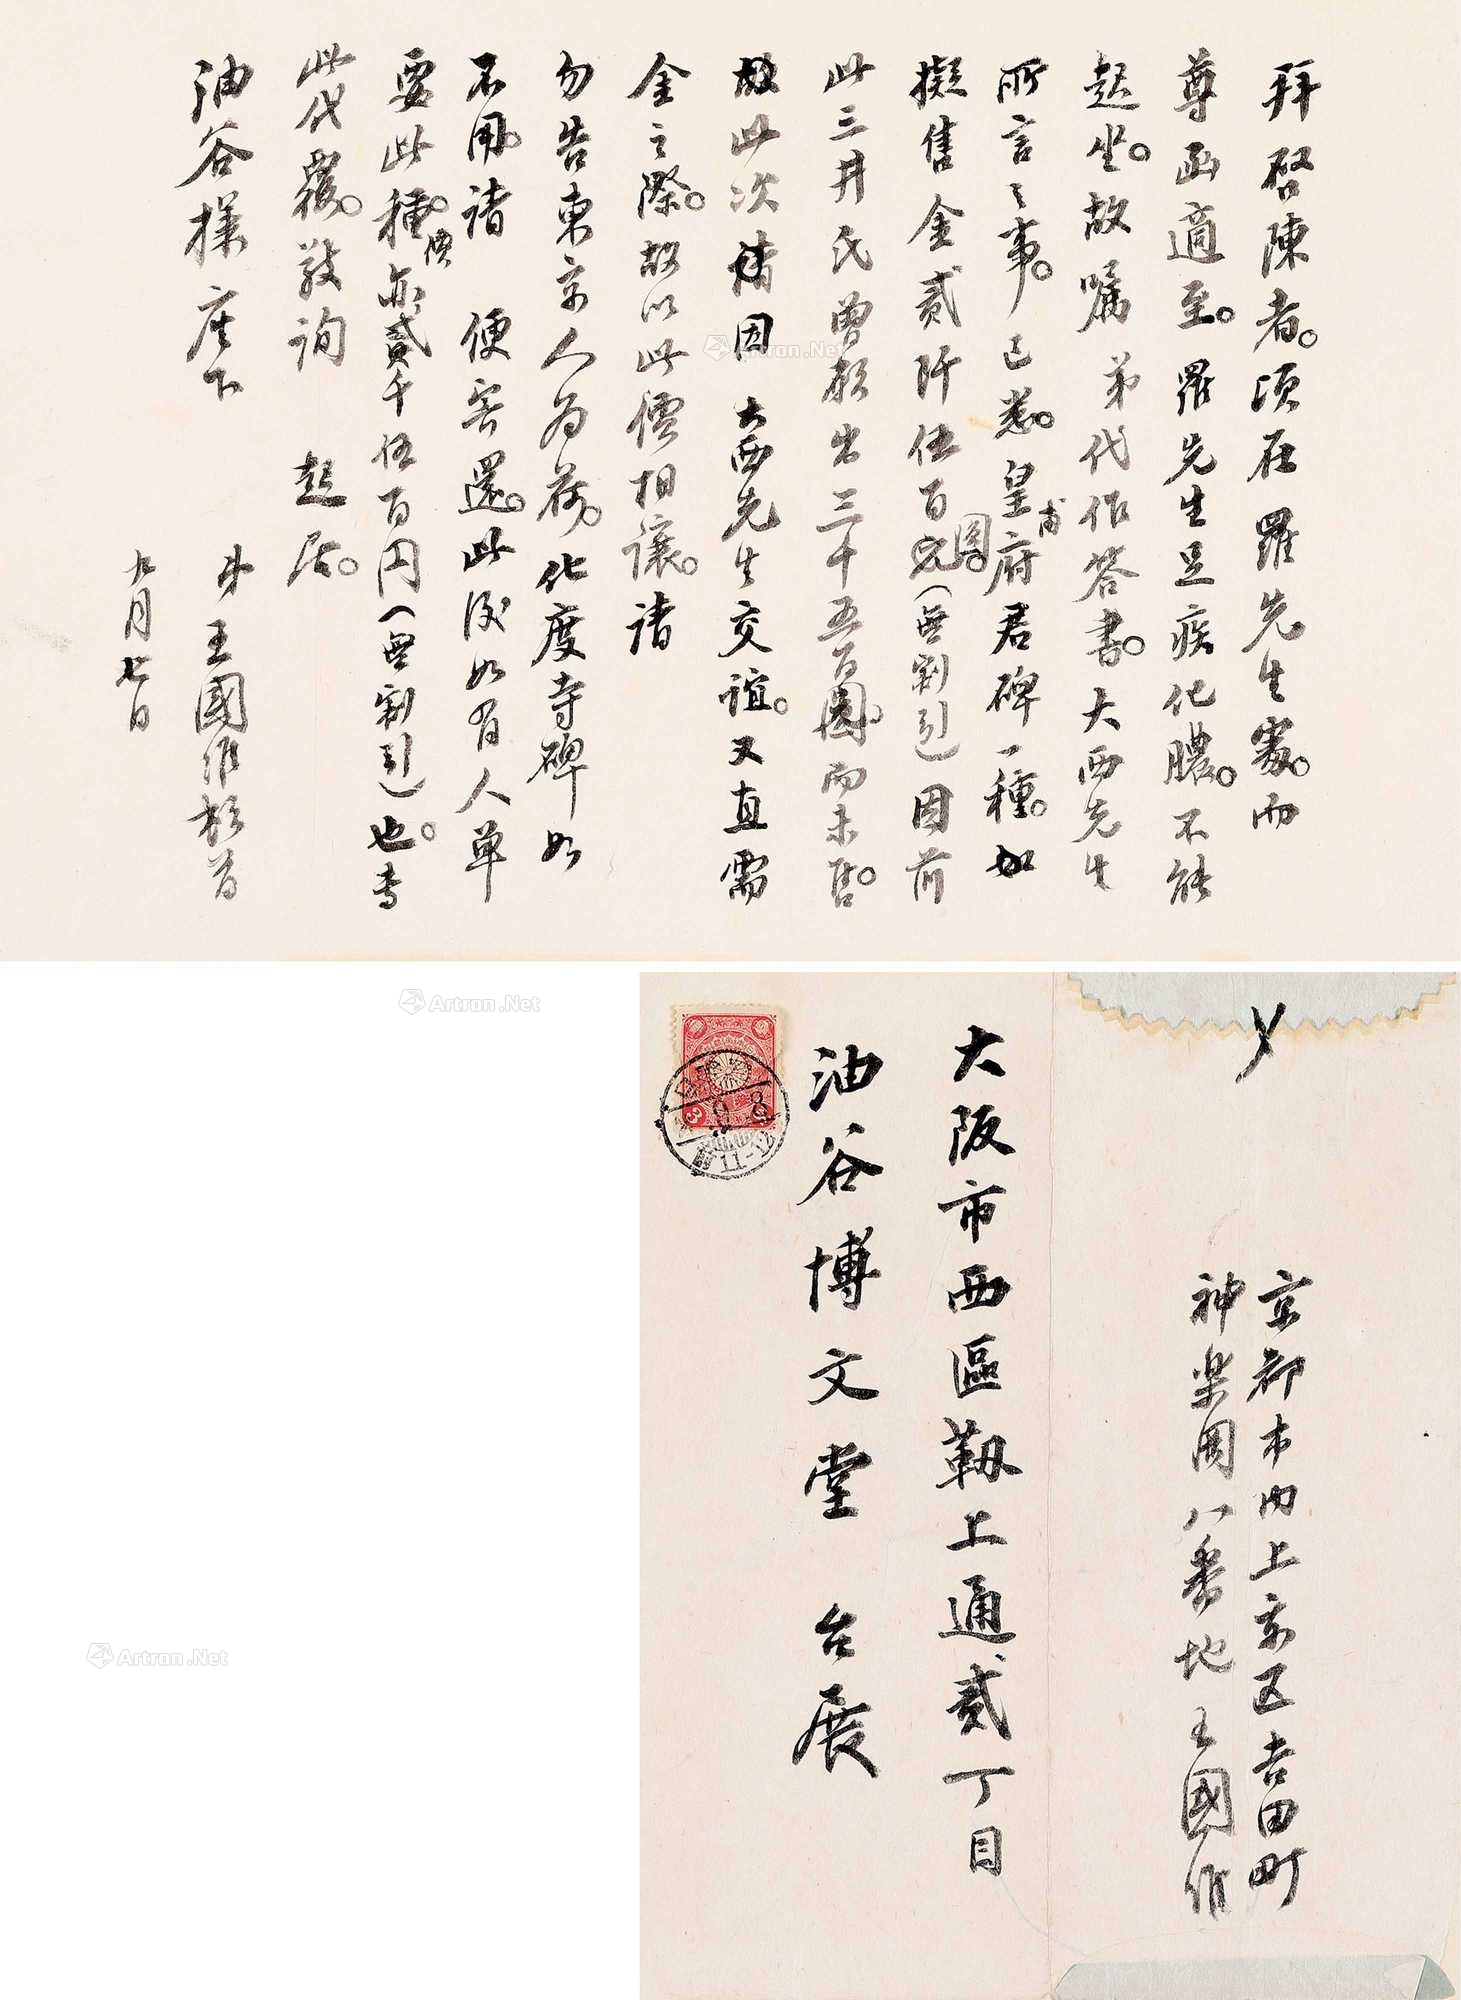 拜啓陳者。頃在羅先生處。而
尊函適至。羅先生足疾化膿。不能
起坐。故囑弟代作答書。大西先生
所言之事。已悉。皇甫府君碑一種。如
擬售金貳阡伍百圓。(無割引)因前
此三井氏曾願出三千五百圓。而未售。
故此次請因大西先生交誼。又直需
金之際。故以此價相讓。請
勿告東京人為荷。化度寺碑如
不用。請便寄還。此後如有人單
要此種。價亦貳千伍百円(無割引)也。專
此代覆。敬詢起居。
油谷樣座下
弟王國維頓首
九月七日
大阪市西區靱上通貳丁目
油谷博文堂 台展
京都市内上京区吉田町
神楽岡八番地王國維
Artron.Net
Artron.Net
Artron.Net